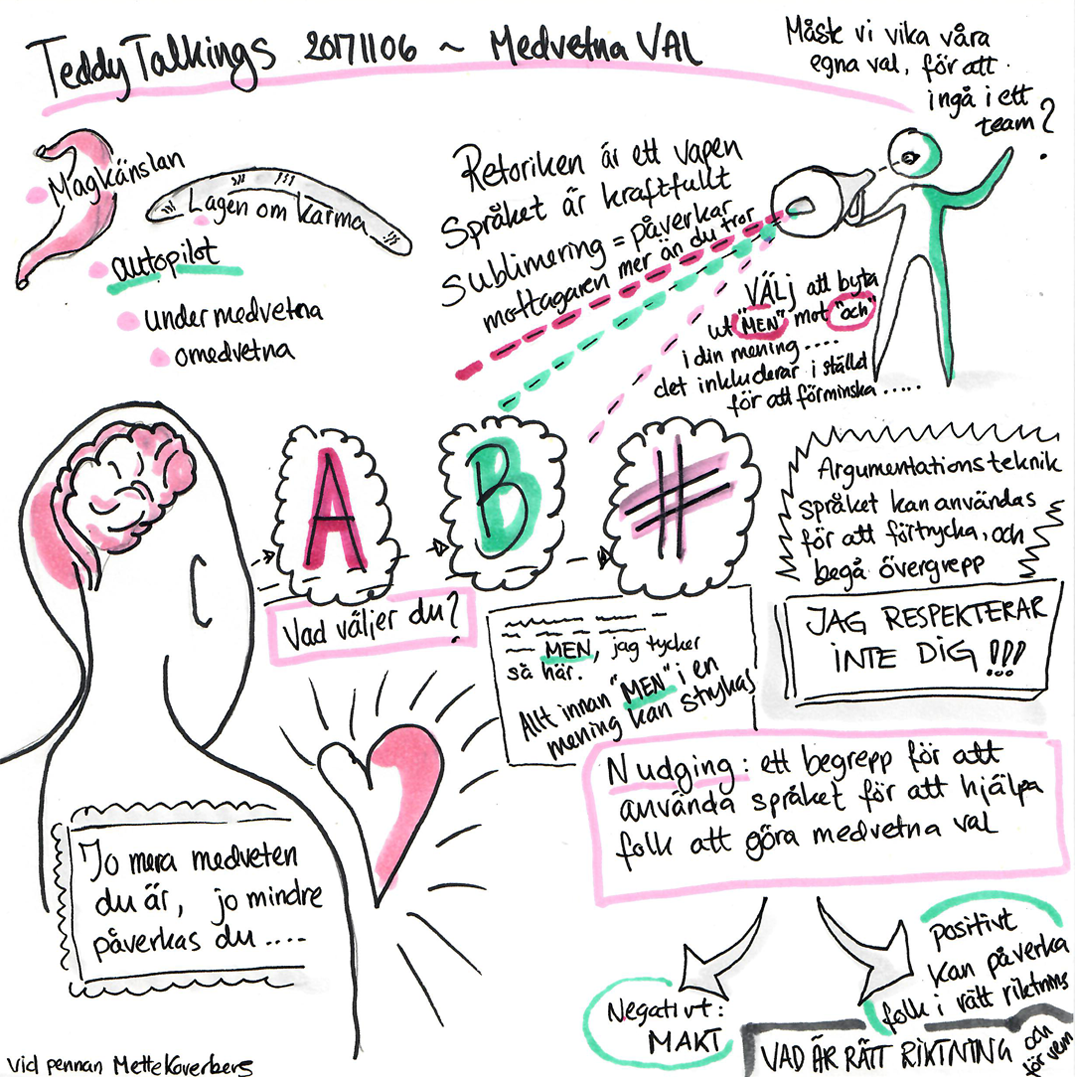 Teddy Talkings 20171106 ~ Medvetna VAL
Måste vi vika våra
egna val, för att
ingå i ett
team?
Magkänslan
Lagen om Karma
autopilot
undermedvetna
omedvetna
Retoriken är ett vapen
Språket är kraftfullt
Sublimering = påverkar
mottagaren mer än du tror
VÄLJ att byta
ut "MEN" mot "och"
i din mening ....
det inkluderar i stället
för att förminska .....
A
B
#
Vad väljer du?
MEN, jag tycker
så här.
Allt innan "MEN" i en
mening kan strykas
Argumentationsteknik
språket kan användas
för att förtrycka, och
begå övergrepp
JAG RESPEKTERAR
INTE DIG!!!
Nudging: ett begrepp för att
använda språket för att hjälpa
folk att göra medvetna val
Jo mera medveten
du är, jo mindre
påverkas du ....
Negativt:
MAKT
positivt
kan påverka
folk i rätt riktning
VAD ÄR RÄTT RIKTNING och
för vem
Vid pennan Mette Koverberg